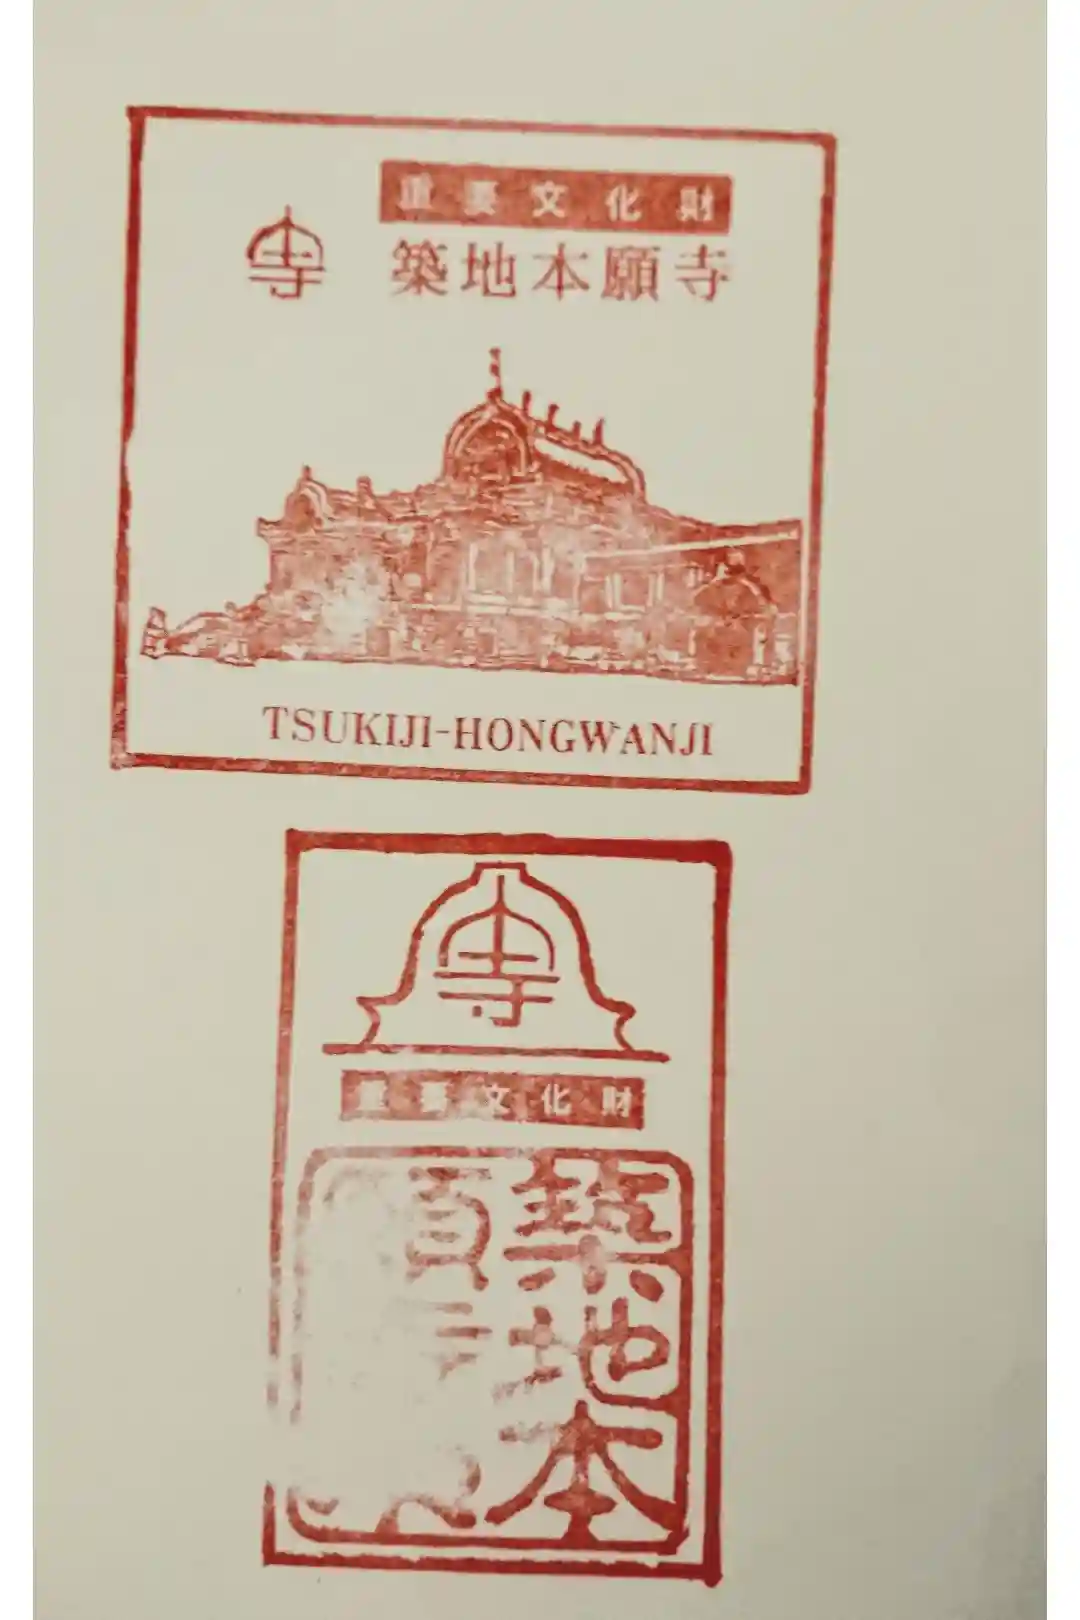 重要文化財
寺 築地本願寺
TSUKIJI-HONGWANJI
寺
重要文化財
築地本